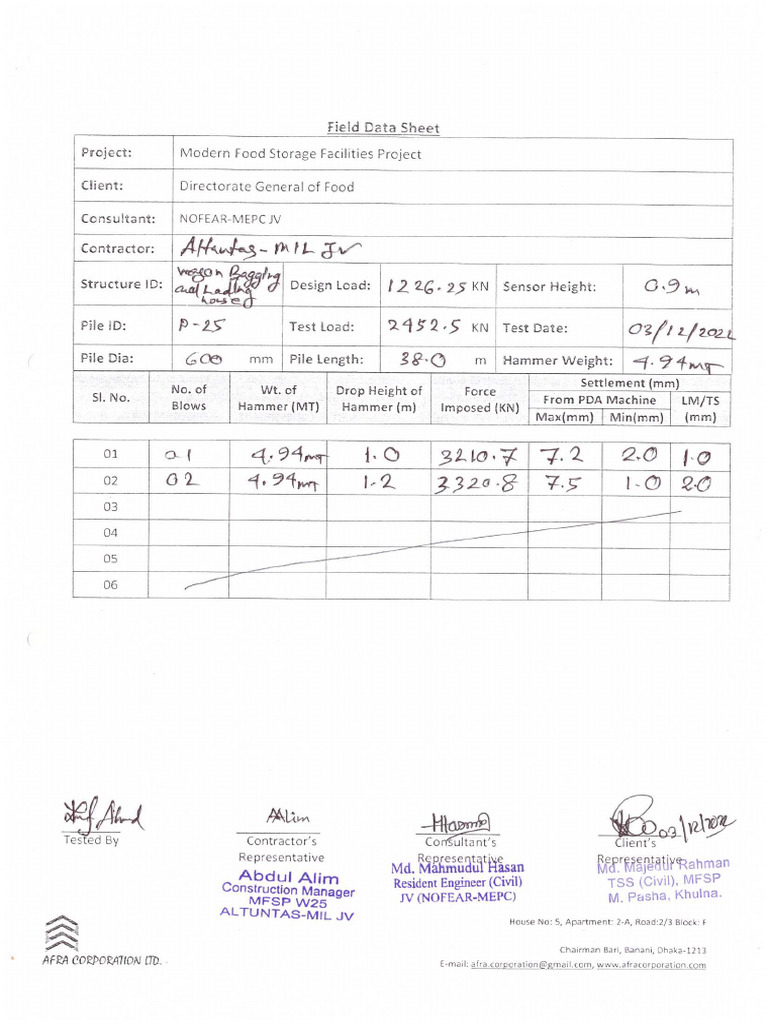 Field Data Sheet
Project: Modern Food Storage Facilities Project
Client: Directorate General of Food
Consultant: NOFEAR-MEPC JV
Contractor: Altuntas-MIL JV
Structure ID: Wagon Bagging and Loading house Design Load: 1226.25 KN Sensor Height: 0.9m
Pile ID: P-25 Test Load: 2452.5 KN Test Date: 03/12/2022
Pile Dia: 600 mm Pile Length: 38.0 m Hammer Weight: 4.94MT
Sl. No. No. of Blows Wt. of Hammer (MT) Drop Height of Hammer (m) Force Imposed (KN) Settlement (mm)
From PDA Machine LM/TS (mm)
Max(mm) Min(mm)
01 01 4.94MT 1.0 3210.7 7.2 2.0 1.0
02 02 4.94MT 1.2 3320.8 7.5 1.0 2.0
03
04
05
06
AAlim
03/12/2022
Tested By Contractor's Representative Consultant's Representative Client's Representative
Abdul Alim
Construction Manager
MFSP W25
ALTUNTAS-MIL JV
Md. Mahmudul Hasan
Resident Engineer (Civil)
JV (NOFEAR-MEPC)
Md. Majedur Rahman
TSS (Civil), MFSP
M. Pasha, Khulna.
AFRA CORPORATION LTD.
House No: 5, Apartment: 2-A, Road:2/3 Block: F
Chairman Bari, Banani, Dhaka-1213
E-mail: afra.corporation@gmail.com, www.afracorporation.com